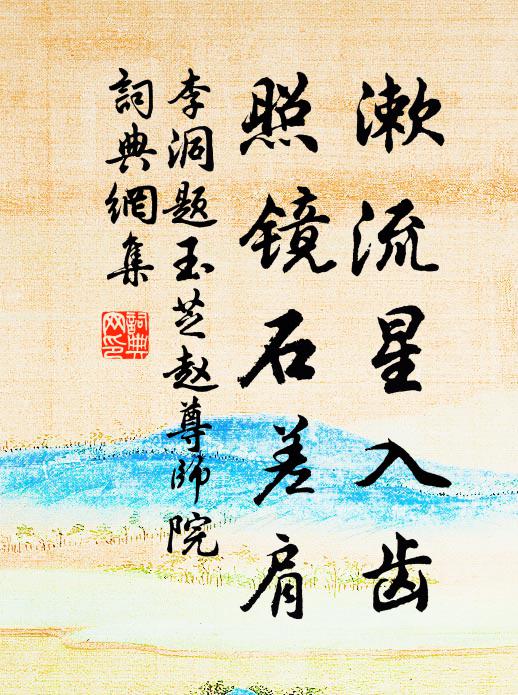 漱流星入齿
照镜石差肩
李洞题玉芝赵尊師院
詞典網集
詞典网印